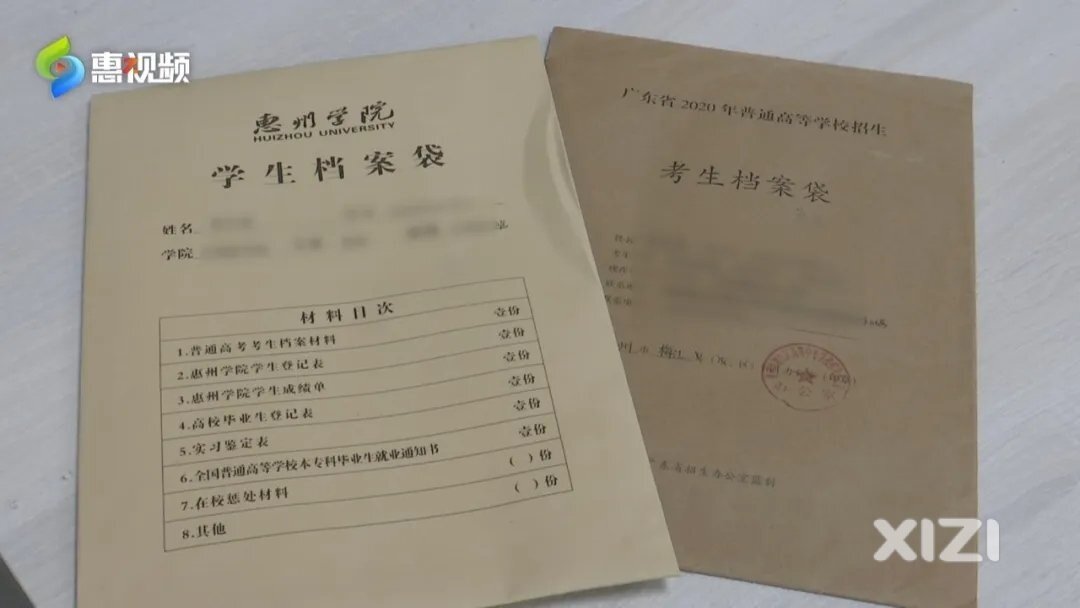 惠视频
惠州学院
HUIZHOU UNIVERSITY
学生档案袋
姓名
学院
材料目次
1.普通高考考生档案材料 壹份
2.惠州学院学生登记表 壹份
3.惠州学院学生成绩单 壹份
4.高校毕业生登记表 壹份
5.实习鉴定表 壹份
6.全国普通高等学校本专科毕业生就业通知书 壹份
7.在校惩处材料 ( )份
8.其他 ( )份
广东省2020年普通高等学校招生
考生档案袋
姓名
州市梅江区(市、区)
办公室
广东省招生办公室监制
XIZI